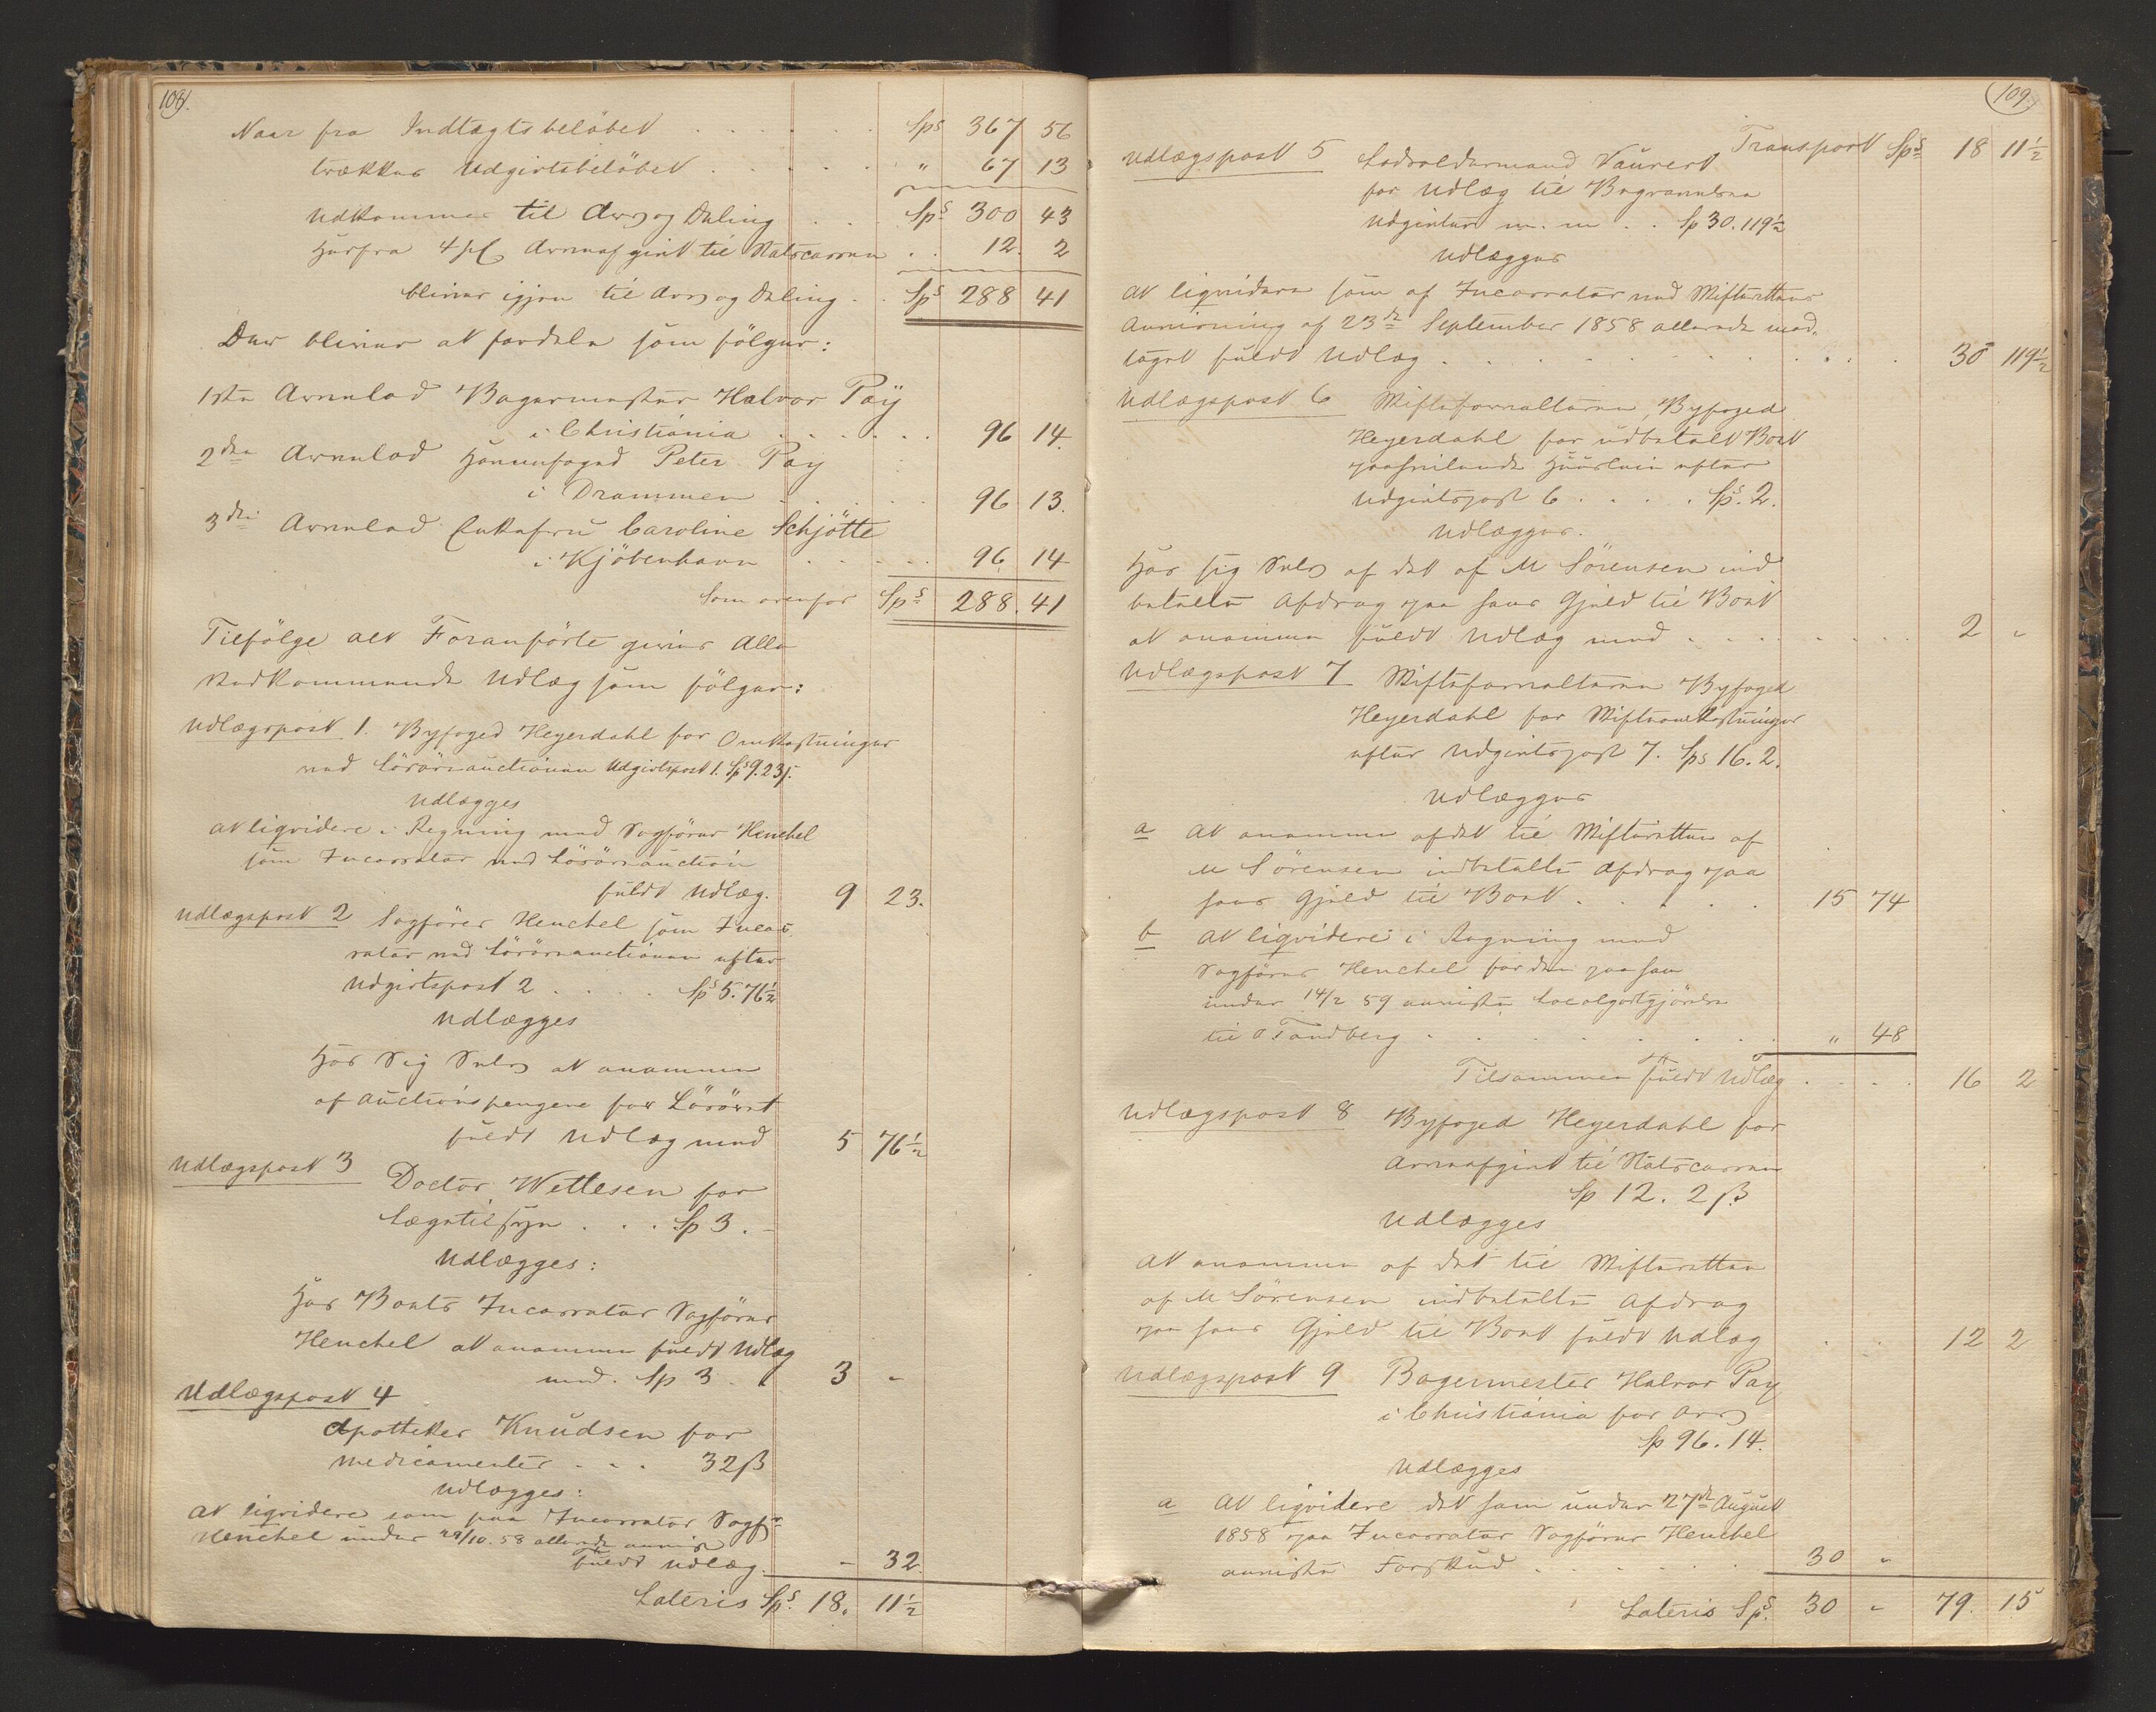 108.
Naar fra Indtægtsbeløbet . . . . . . Spd 367 56
trækkes Udgivtsbeløbet . . . . . " 67 13
Udkommer til Arv og Deling . . . Spd 300 43
Herfra 4 pC Arveafgivt til Statscassen . . 12. 2
bliver igjen til Arv og Deling . . Spd 288 41
Der bliver at fordele som følger:
1ste Arvelod Bagermester Halvor Paÿ
i Christiania . . . . . . 96 14.
2den Arvelod Havnefoged Peter Pay
i Drammen . . . . . 96 13.
3die Arvelod Enkefru Caroline Schjøtte
i Kjöbenhavn . . . . . 96 14
Som ovenfor Spd 288. 41
Tilfölge alt Foranförte gives alle
Vedkommende Udlæg som fölger:
Udlægspost 1. Byfoged Heyerdahl for Omkostninger
ved Lösöreauctionen Udgivtspost 1. Spd 9. 23 ß.
Udlægges
at liqvidere i Regning med Sagförer Henchel
som Incassator ved Lösöreauction
fuldt Udlæg. 9 23.
Udlægspost 2 Sagförer Henchel som Incas-
sator ved Lösöreauctionen efter
Udgivtspost 2 . . . . Spd 5. 76½
Udlægges
Hos Sig Selv at anamme
af Auctionspengene for Lösöret
fuldt Udlæg med 5 76½
Udlægspost 3 Doctor Wettesen for
Lægetilsyn . . . Sp 3. -
Udlægges:
Hos Boets Incassator Sagförer
Henchel at anamme fuldt Udlæg
med. Sp 3 . 3 -
Udlægspost 4
Apotheker Knudsen for
Medicamenter . . . 32 ß
Udlægges:
At liqvidere som paa Incassator Sagf.
Henchel under 29/10. 58 allerede anvist
fuldt Udlæg. - 32.
Lateris Spd. 18. 11½
109.
Transport Spd 18 11½
Udlægspost 5 Lodsoldermand Vauvert
for Udlæg til Begravelses
Udgivter m. m . . Sp 30. 119½
Udlægges
At liqvidere som af Incassator med Skifterettens
Anvisning af 23de September 1858 allerede mod-
taget fuldt Udlæg . . . . . . . . . 30 119½
Udlægspost 6 Skifteforvalteren, Byfoged
Heyerdahl for udbetalt Boet
paahvilende Huusleie efter
Udgivtspost 6 . . . . Spd. 2.
Udlægges.
Hos sig Selv af det af M Sörensen ind
betalte Afdrag paa hans Gjeld til Boet
at anamme fuldt Udlæg med . . . . . . . 2 -
Udlægspost 7 Skifteforvalteren Byfoged
Heyerdahl for Skifteomkostninger
efter Udgivtspost 7. Spd 16. 2.
Udlægges
a At anamme af det til Skifteretten af
M Sörensen indbetalte Afdrag paa
hans Gjeld til Boet . . . . . 15 74
b At liqvidere i Regning med
Sagförer Henchel for den paa ham
under 14/2 59 anviste Localgodtgjörelse
til O Tandberg . . . . . . . . " 48
Tilsammen fuldt Udlæg . . . . 16 2
Udlægspost 8 Byfoged Heyerdahl for
Arveafgivt til Statscassen
Sp 12. 2 ß
Udlægges
At anamme af det til Skifteretten
af M Sörensen indbetalte Afdrag
paa hans Gjeld til Boet fuldt Udlæg . . 12 2
Udlægspost 9 Bagermester Halvor Pay
i Christiania for Arv
Sp 96. 14.
Udlægges
a At liqvidere det ham under 27de August
1858 paa Incassator Sagförer Henchel
anviste Forskud . . . . . 30 -
Lateris Spd. 30 - 79. 15